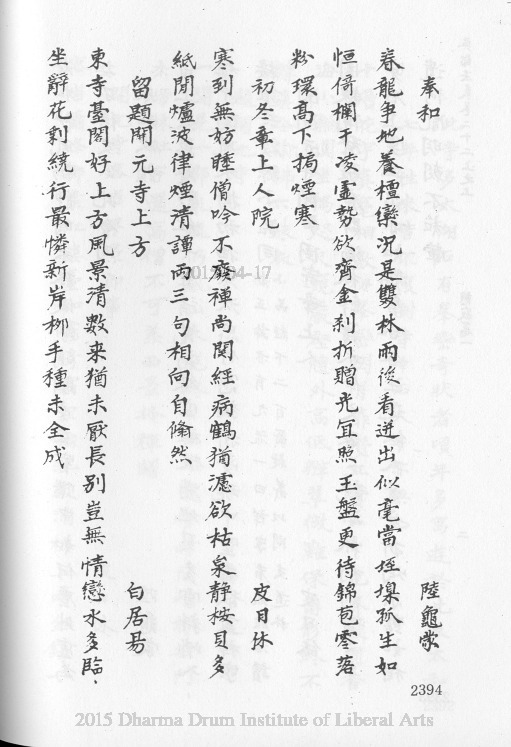 奉和 陸龜蒙
春龍爭地養檀欒況是雙林雨後看迸出似毫當垤塿孤生如
恒倚欄干凌虛勢欲齊金剎折贈光宜照玉盤更待錦苞零落
粉環高下捎煙寒
初冬章上人院 皮日休
寒到無妨睡僧吟不廢禪尚關經病鶴猶濾欲枯泉靜桉貝多
紙閒爐波律煙清譚兩三句相向自翛然
留題開元寺上方 白居易
東寺臺閣好上方風景清數來猶未厭長別豈無情戀水多臨
坐辭花剩繞行最憐新岸柳手種未全成
2012-04-17
2394
2015 Dharma Drum Institute of Liberal Arts